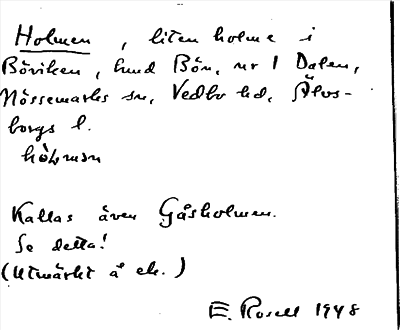 Holmen, liten holme i
Böviken, hmd Bön, nr 1 Dalen,
Nössemarks sn, Vedbo hd, Älvs-
borgs l.
hòlmən
Kallas även Gåsholmen.
Se detta!
(Utmärkt å ek.)
E. Rosell 1948